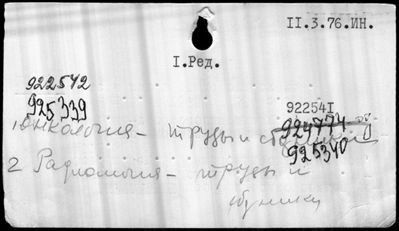 II.3.76.ИН.
I.Ред.
922542
925339
922541
924774
925340
1 Онкология - труды и сборники
2 Радиология - труды и
сборники